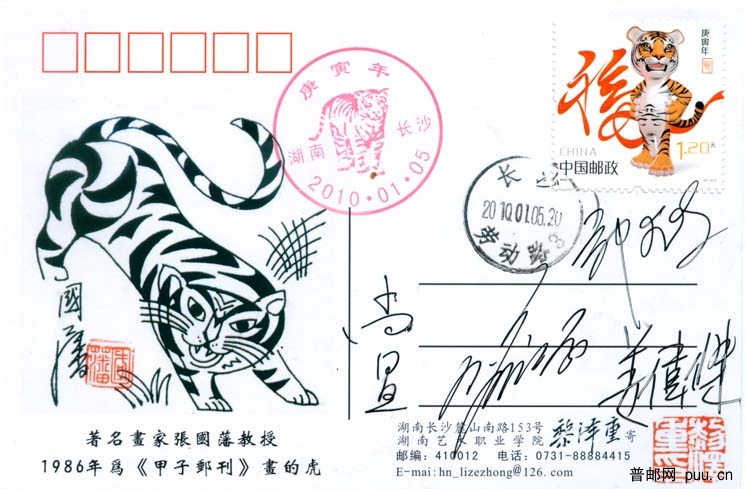 庚寅年
湖南 长沙
2010·01·05
庚寅年
福
CHINA
中国邮政
1.20元
长沙
2010.01.05.20
劳动路
國藩
著名畫家張國藩教授
1986年爲《甲子郵刊》畫的虎
湖南长沙麓山南路153号
湖南艺术职业学院 黎泽重 寄
邮编：410012 电话：0731-88884415
E-mai:hn_lizezhong@126.com
普邮网 puu.cn